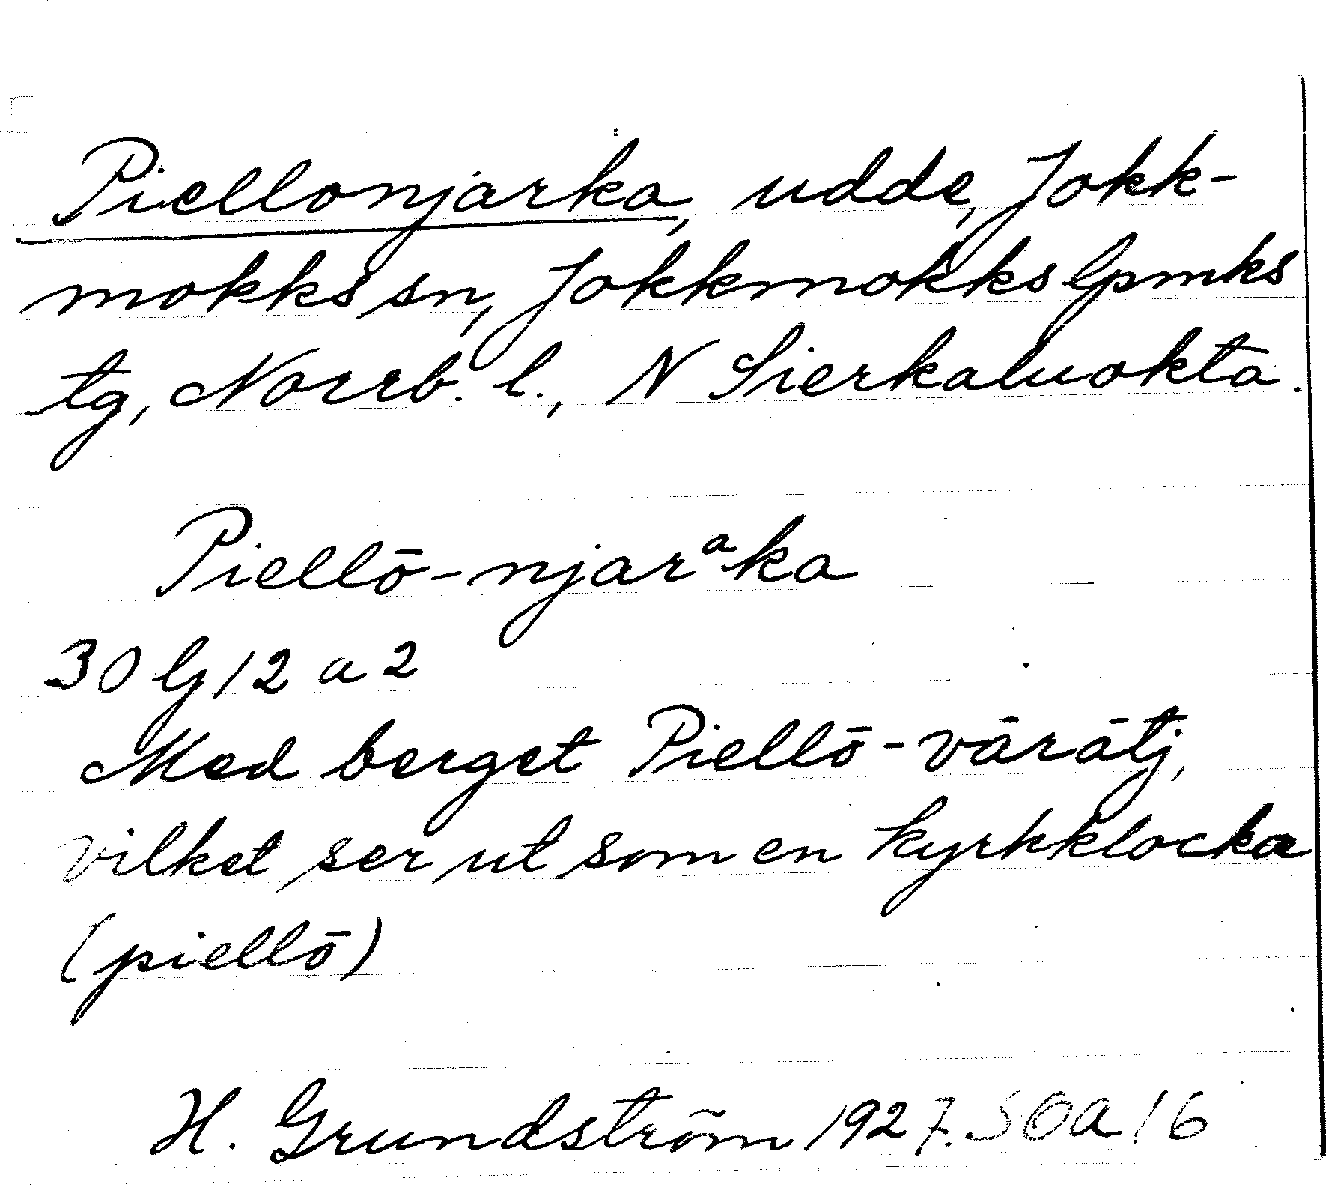 Piellonjarka, udde, Jokk-
mokks sn, Jokkmokks lpmks
tg, Norrb. l., N Sierkaluokta.
Piellō-njarᵃka
30 G 12 a 2
Med berget Piellō-vārātj,
vilket ser ut som en kyrkklocka
(piellō)
H. Grundström 1927. SOA 16